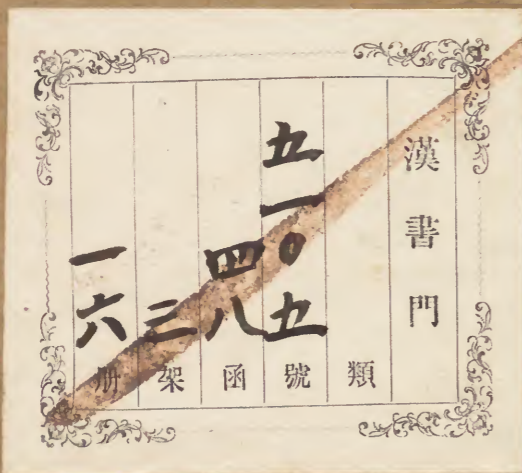 漢書門
類
五一〇五號
四八函
三架
一六冊